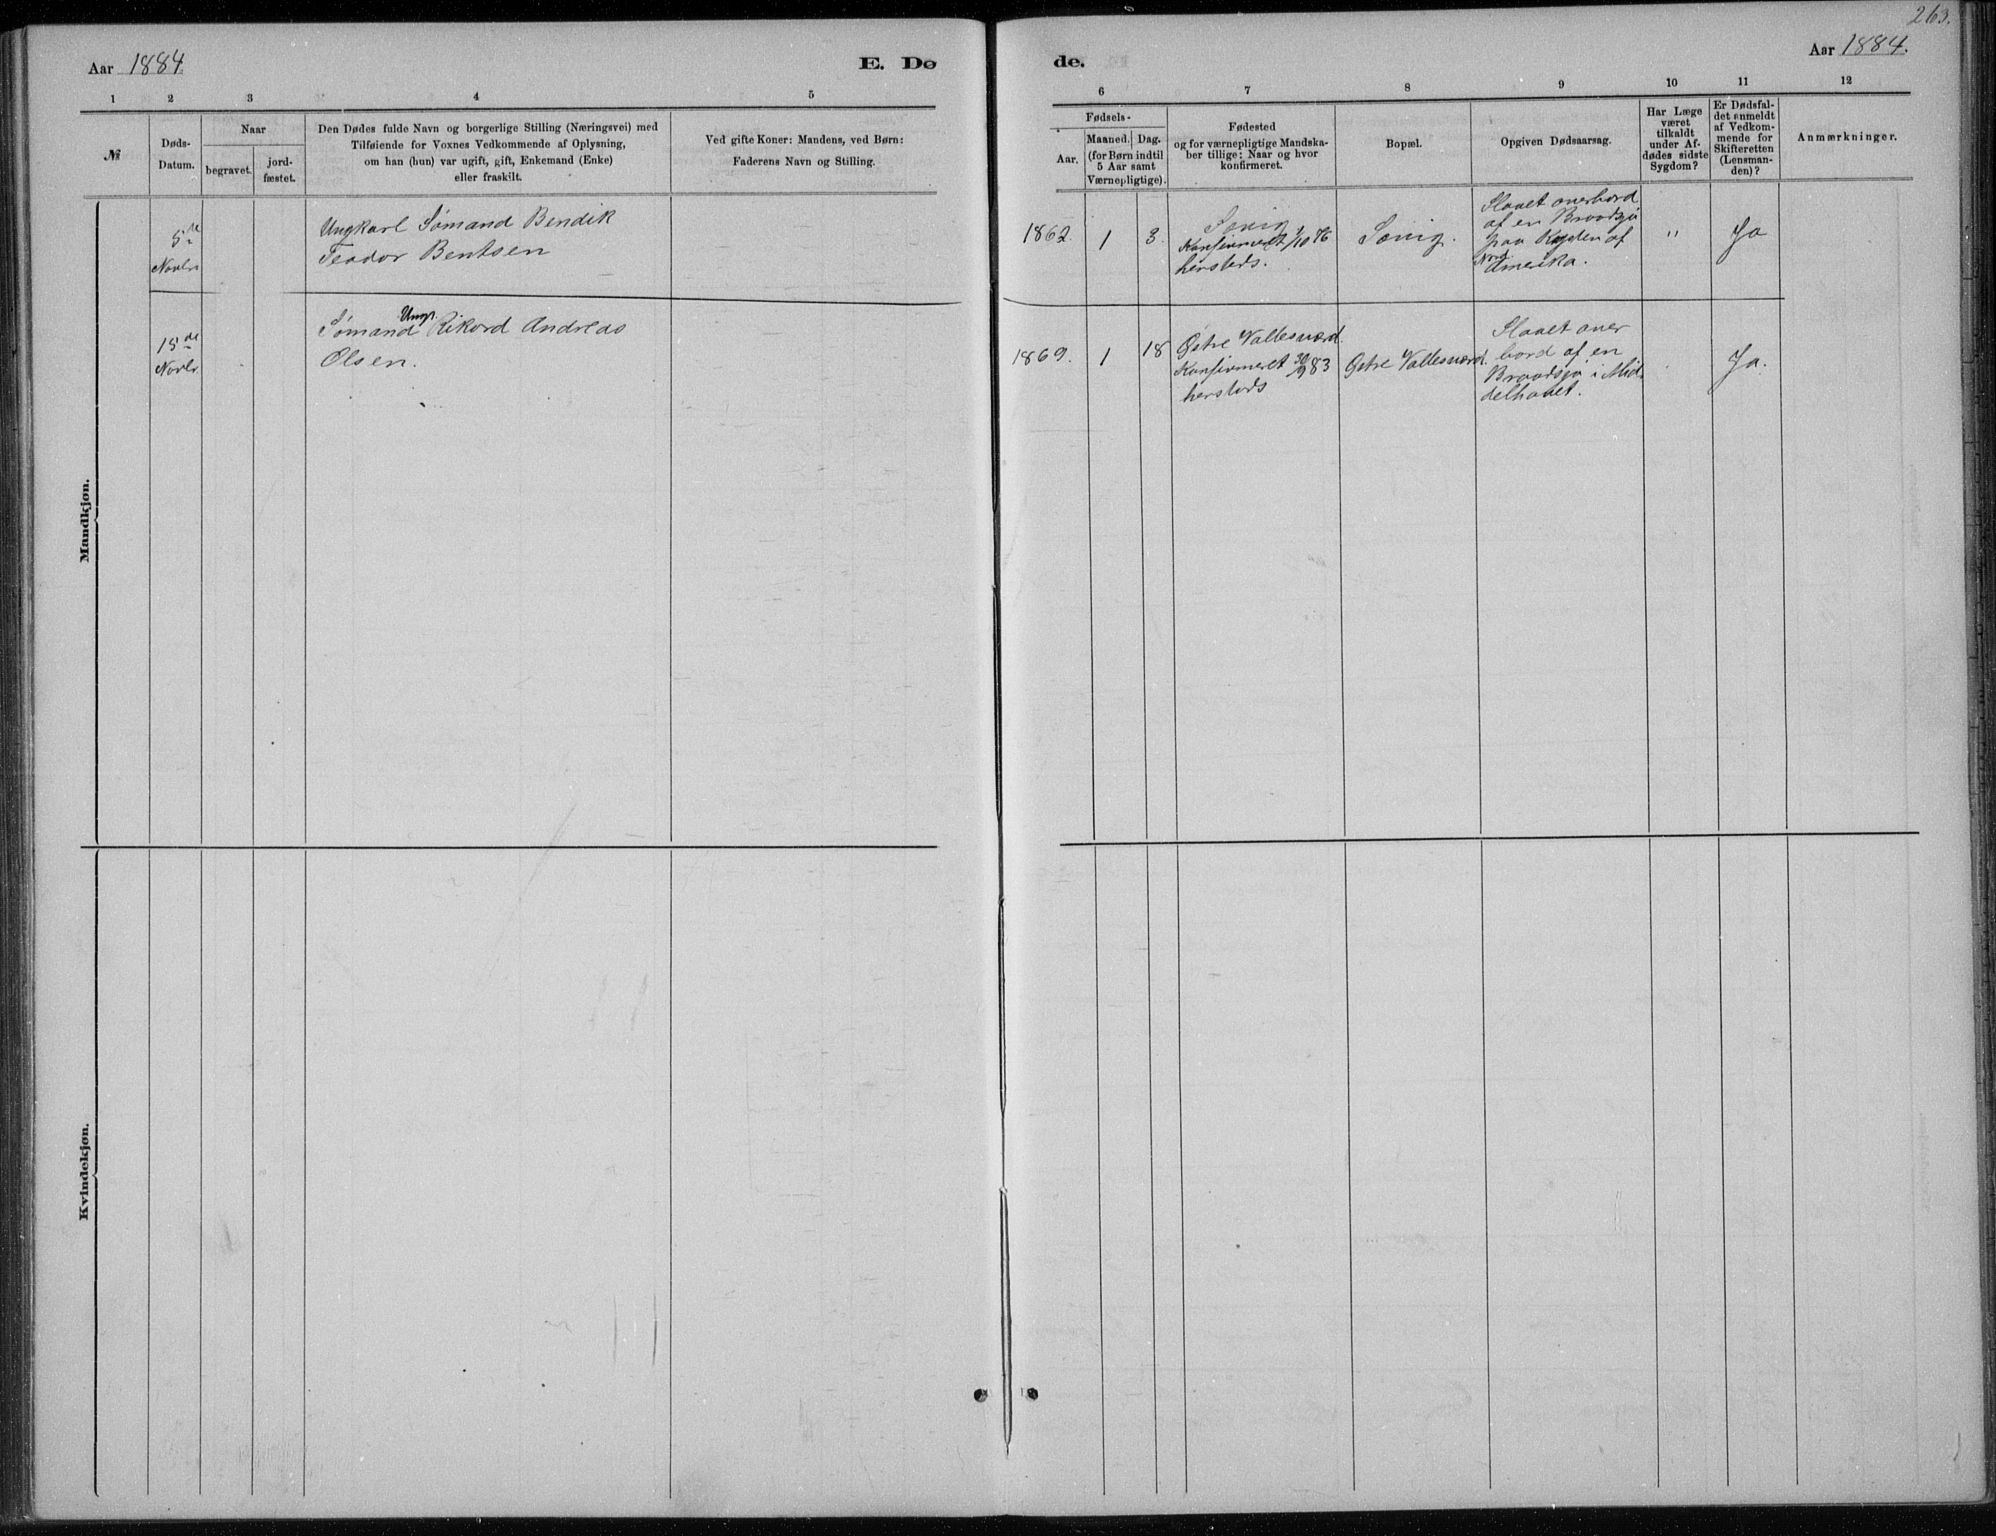 263.
Aar 1884
E. Dø
de.
Aar 1884.
1 2 3 4 5
6 7 8 9 10 11 12
№
Døds-
Datum.
Naar
begravet.
jord-
fæstet.
Den Dødes fulde Navn og borgerlige Stilling (Næringsvei) med
Tilføiende for Voxnes Vedkommende af Oplysning,
om han (hun) var ugift, gift, Enkemand (Enke)
eller fraskilt.
Ved gifte Koner: Mandens, ved Børn:
Faderens Navn og Stilling.
Fødsels-
Aar.
Maaned. Dag.
(for Børn indtil
5 Aar samt
Værnepligtige).
Fødested
og for værnepligtige Mandska-
ber tillige: Naar og hvor
konfirmeret.
Bopæl.
Opgiven Dødsaarsag.
Har Læge
været
tilkaldt
under Af-
dødes sidste
Sygdom?
Er Dødsfal-
det anmeldt
af Vedkom-
mende for
Skifteretten
(Lensman-
den)?
Anmærkninger.
Mandkjøn.
5te
Novbr
Ungkarl Sømand Bendik
Teodor Bentsen
1862. 1 3.
Songig
Konfirmeret 1/10 76
hersteds.
Slaaet overbord
af en Braadsjø
paa Kysten af
Nord
Amerika.
"
Ja
15de
Novbr
Ungk.
Sømand Rikord Andreas
Olsen.
1869. 1 18
Østre Vallesværd.
Konfirmeret 30/9 83
hersteds
Østre Vallesværd.
Slaaet over
bord af en
Braadsjø i Mid-
delhavet.
Ja.
Kvindekjøn.